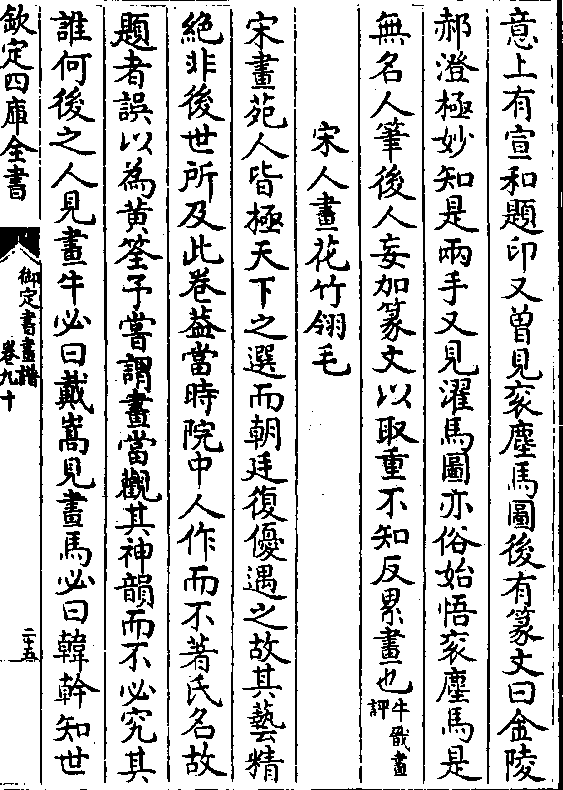 意上有宣和題印又曽見衮塵馬圖後有篆文曰金陵
郝澄極妙知是兩手又見濯馬圖亦俗始悟衮塵馬是
無名人筆後人妄加篆文以取重不知反累畫也牛戩畫評
宋人畫花竹翎毛
宋畫苑人皆極天下之選而朝廷復優遇之故其藝精
絕非後世所及此卷葢當時院中人作而不著氏名故
題者誤以為黄筌予嘗謂畫當觀其神韻而不必究其
誰何後之人見畫牛必曰戴嵩見畫馬必曰韓幹知世
欽定四庫全書
御定書畫譜
卷九十
二十五